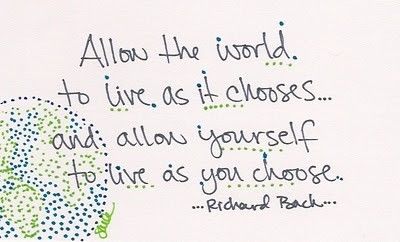 Allow the world
to live as it chooses...
and allow yourself
to live as you choose.
...Richard Bach...